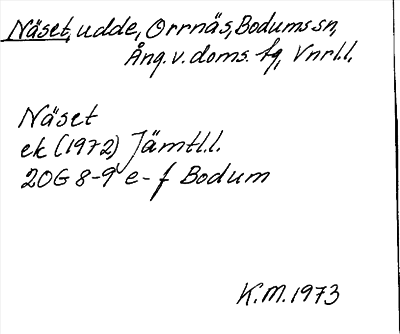 Näset, udde, Orrnäs, Bodums sn,
Ång. v. doms. fg, Vnrl.l.
Näset
ek (1972) Jämtl.l.
20G 8-9 e-f Bodum
K.M. 1973